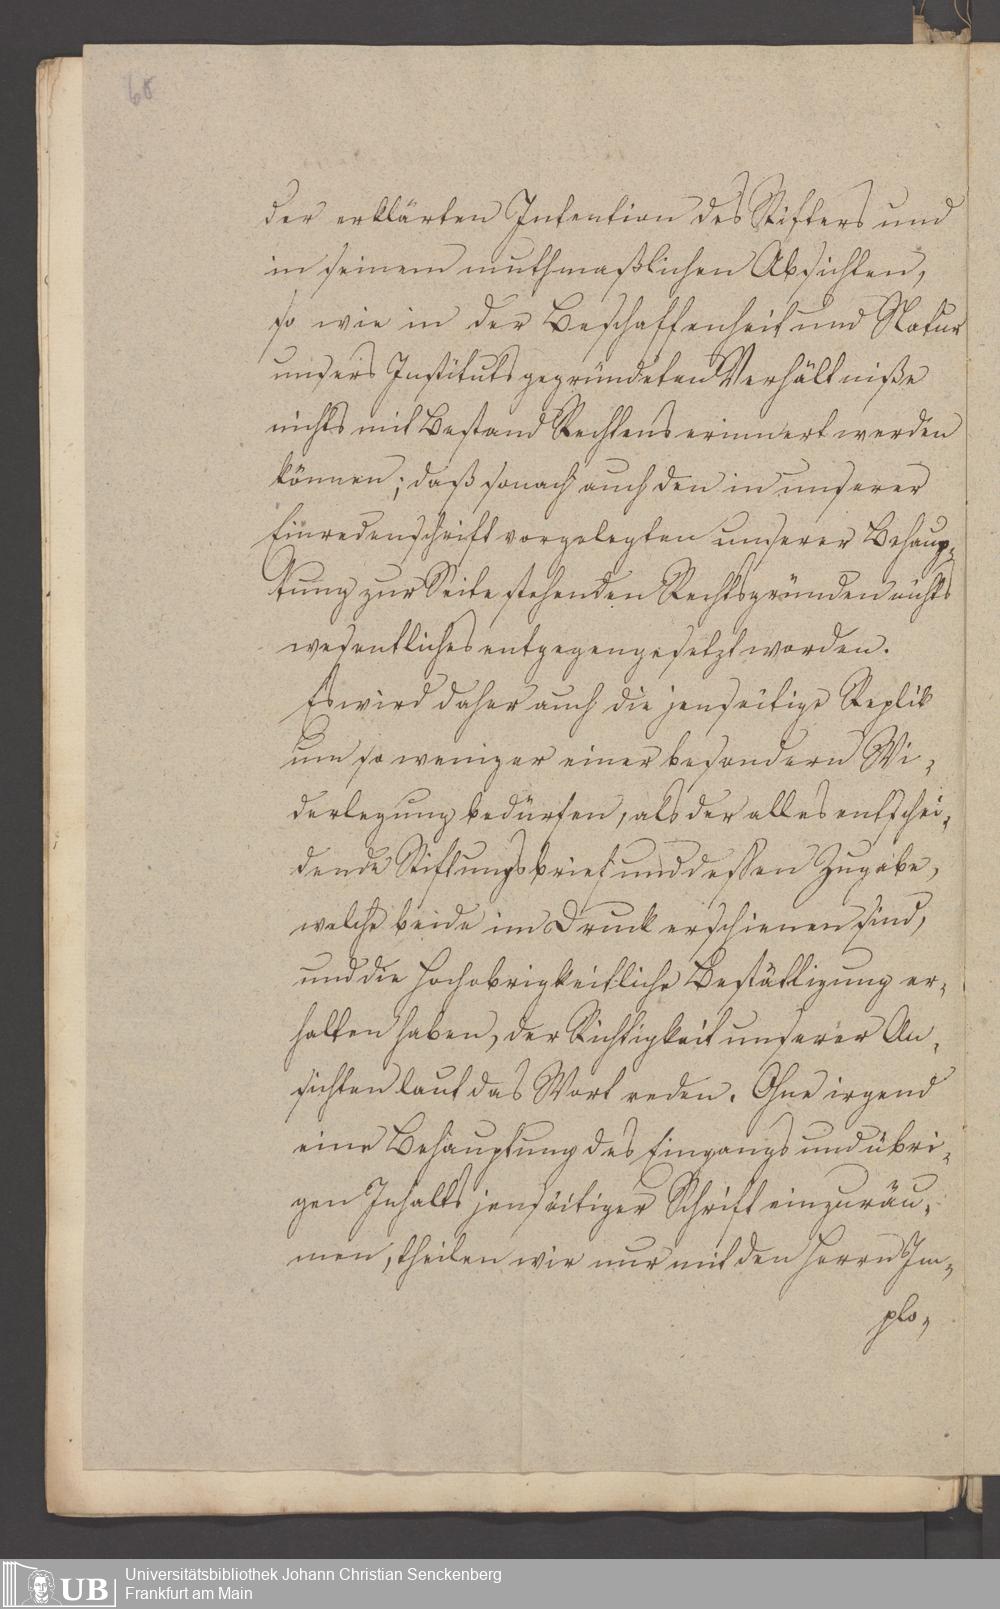 68
der erklärten Intention des Stifters und
in seinem muthmaßlichen Absichten,
so wie in der Beschaffenheit und Natur
unsers Instituts gegründeten Verhältniße
nichts mit Bestand Rechtens erinnert werden
können; daß sonach auch den in unserer
Einredenschrift vorgelegten unserer Behaup-
tung zur Seite stehenden Rechtsgründen nichts
wesentliches entgegengesetzt worden.
Es wird daher auch die jenseitige Replik
um so weniger einer besondern Wi-
derlegung bedürfen, als der alles entschei-
dende Stiftungsbrief und dessen Zugabe,
welche beide im Druck erschienen sind,
und die hochobrigkeitliche Bestättigung er-
halten haben, der Richtigkeit unserer An-
sichten laut das Wort reden. Ohne irgend
eine Behauptung des Eingangs und übri-
gen Inhalts jenseitiger Schrift einzuräu-
men, theilen wir nur mit den Herrn Im-
plo-
UB
Universitätsbibliothek Johann Christian Senckenberg
Frankfurt am Main